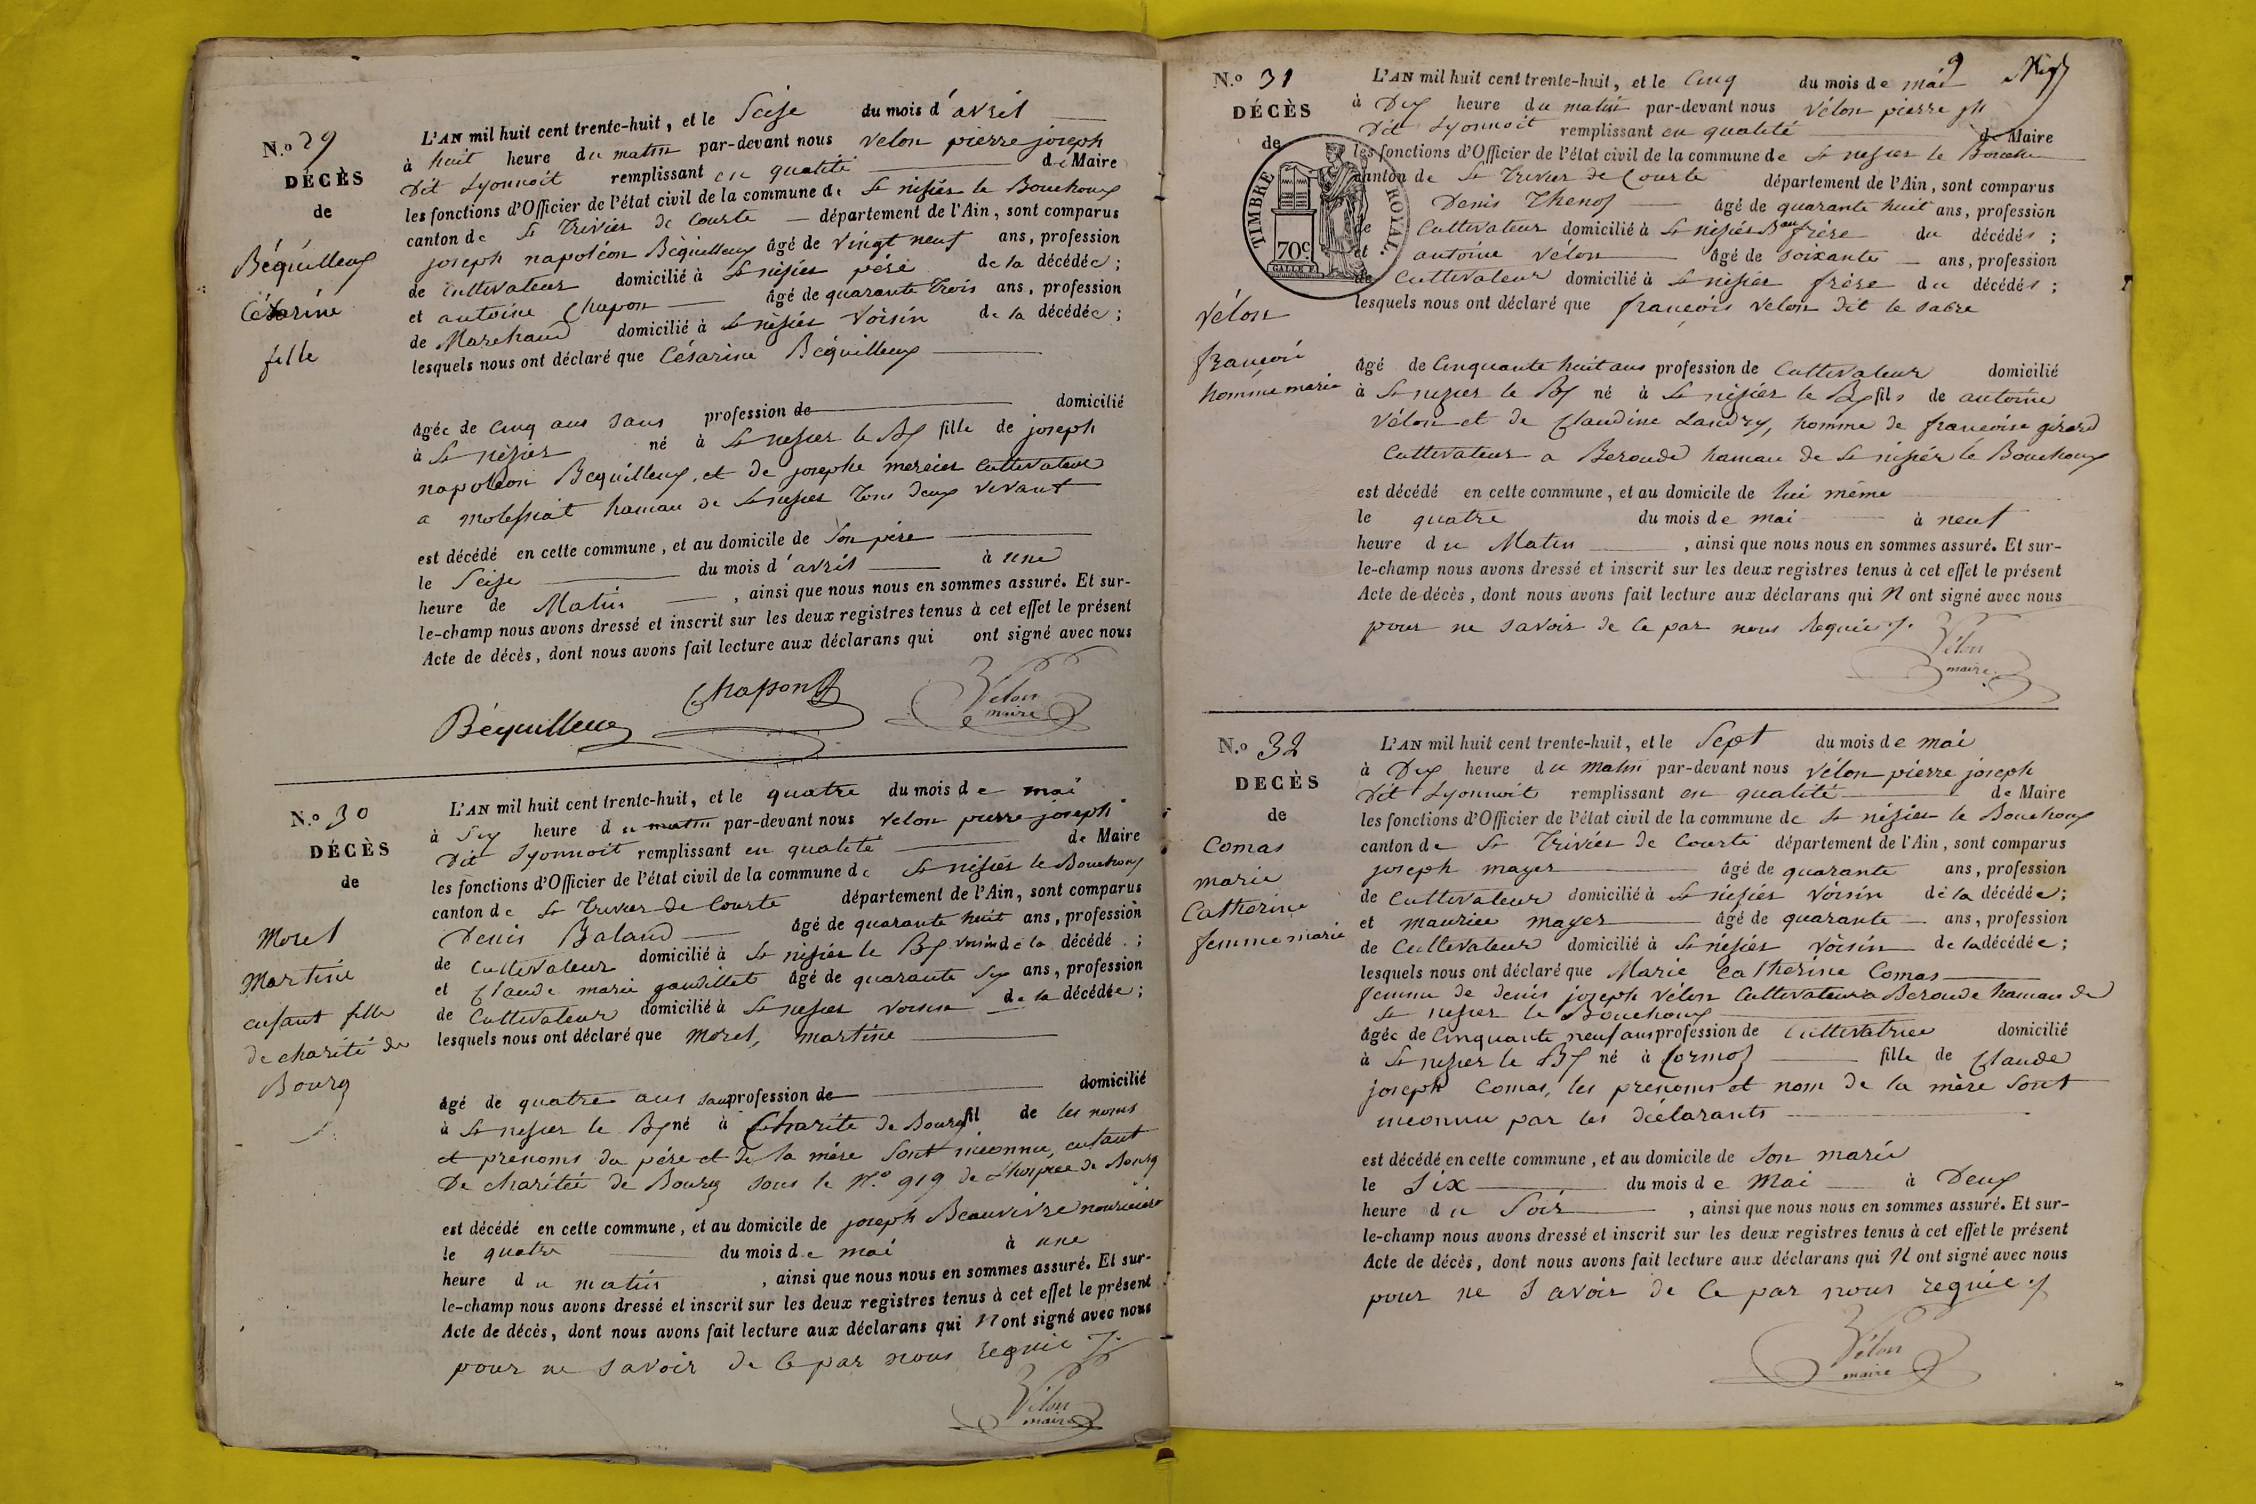 N.º 29
DÉCÈS
de
Béquilleux
Césarine
fille
L'AN mil huit cent trente-huit, et le Seise du mois d'avril
à huit heure du matin par-devant nous velon pierre joseph
Dit Lyonnoit remplissant en qualité de Maire
les fonctions d'Officier de l'état civil de la commune de St nisier le Bouchoux
canton de St Trivier de Courte département de l'Ain, sont comparus
joseph napoléon Béquilleux âgé de vingt neuf ans, profession
de cultivateur domicilié à St nisier père de la décédée ;
et antoine Chapon âgé de quarante trois ans, profession
de Marchand domicilié à St nisier voisin de la décédée ;
lesquels nous ont déclaré que Césarine Béquilleux
âgée de cinq ans sans profession de domicilié
à St nisier né à St nisier le Bx fille de joseph
napoléon Bequilleux, et de josephe mercier cultivateur
a molissiat hamau de St nisier tous deux vivant
est décédé en cette commune, et au domicile de son père
le Seise du mois d'avril à une
heure de Matin , ainsi que nous nous en sommes assuré. Et sur-
le-champ nous avons dressé et inscrit sur les deux registres tenus à cet effet le présent
Acte de décès, dont nous avons fait lecture aux déclarans qui ont signé avec nous
Chapon
Vélon
maire
Béquilleux
N.º 30
DÉCÈS
de
Morel
Martine
enfant fille
de charité de
Bourg
L'AN mil huit cent trente-huit, et le quatre du mois de mai
à Six heure du matin par-devant nous velon pierre joseph
Dit Lyonnoit remplissant en qualité de Maire
les fonctions d'Officier de l'état civil de la commune de St nisier le Bouchoux
canton de St Trivier de Courte département de l'Ain, sont comparus
Denis Baland âgé de quarante huit ans, profession
de cultivateur domicilié à St nisier le Bx voisin de la décédé ;
et Claude marie gaudillet âgé de quarante Six ans, profession
de Cultivateur domicilié à St nisier voisin de la décédée ;
lesquels nous ont déclaré que Morel, martine
âgé de quatre ans sans profession de domicilié
à St nisier le Bx né à Charité de Bourg fil de les noms
et prenoms du père et de la mère sont inconnu, enfant
De charitée de Bourg sous le N.º 919 de L'hospice de Bourg
est décédé en cette commune, et au domicile de joseph Beauvivre nouricier
le quatre du mois de mai à une
heure du matin , ainsi que nous nous en sommes assuré. Et sur-
le-champ nous avons dressé et inscrit sur les deux registres tenus à cet effet le présent
Acte de décès, dont nous avons fait lecture aux déclarans qui N ont signé avec nous
pour ne savoir de ce par nous requis
Vélon
maire
9
N.º 31
DÉCÈS
de
TIMBRE ROYAL.
70c
Vélon
françois
homme marie
L'AN mil huit cent trente-huit, et le Cinq du mois de mai
à Dix heure du matin par-devant nous Vélon pierre jh
Dit Lyonnoit remplissant en qualité de Maire
les fonctions d'Officier de l'état civil de la commune de St nisier le Bouchoux
canton de St Trivier de Courte département de l'Ain, sont comparus
Denis Thenoz âgé de quarante huit ans, profession
de Cultivateur domicilié à St nisier Beau frère du décédés ;
et antoine vélon âgé de soixante ans, profession
de Cultivateur domicilié à St nisier frère du décédés ;
lesquels nous ont déclaré que françois velon dit le sabre
âgé de Cinquante huit ans profession de Cultivateur domicilié
à St nisier le Bx né à St nisier le Bx fils de antoine
vélon et de Claudine Landry, homme de francoise gérard
Cultivateur a Beroude hamau de St nisier le Bouchoux
est décédé en cette commune, et au domicile de lui même
le quatre du mois de mai à neuf
heure du Matin , ainsi que nous nous en sommes assuré. Et sur-
le-champ nous avons dressé et inscrit sur les deux registres tenus à cet effet le présent
Acte de décès, dont nous avons fait lecture aux déclarans qui N ont signé avec nous
pour ne savoir de ce par nous requis
Vélon
maire
N.º 32
DECÈS
de
Comas
marie
Catherine
femme marie
L'AN mil huit cent trente-huit, et le Sept du mois de mai
à Dix heure du matin par-devant nous Vélon pierre joseph
Dit Lyonnoit remplissant en qualité de Maire
les fonctions d'Officier de l'état civil de la commune de St nisier le Bouchoux
canton de St Trivier de Courte département de l'Ain, sont comparus
joseph mayer âgé de quarante ans, profession
de cultivateur domicilié à St nisier voisin de la décédée ;
et maurice mayer âgé de quarante ans, profession
de Cultivateur domicilié à St nisier voisin de la décédée ;
lesquels nous ont déclaré que Marie Catherine Comas
femme de denis joseph vélon cultivateur a Beroude hamau de
St nisier le Bouchoux
âgée de Cinquante neuf ans profession de cultivatrice domicilié
à St nisier le Bx né à Cormoz fille de Claude
joseph Comas, les prenoms et nom de la mère sont
inconnu par les déclarants
est décédé en cette commune, et au domicile de son marie
le Six du mois de Mai à Deux
heure du Soir , ainsi que nous nous en sommes assuré. Et sur-
le-champ nous avons dressé et inscrit sur les deux registres tenus à cet effet le présent
Acte de décès, dont nous avons fait lecture aux déclarans qui N ont signé avec nous
pour ne savoir de ce par nous requis
Vélon
maire